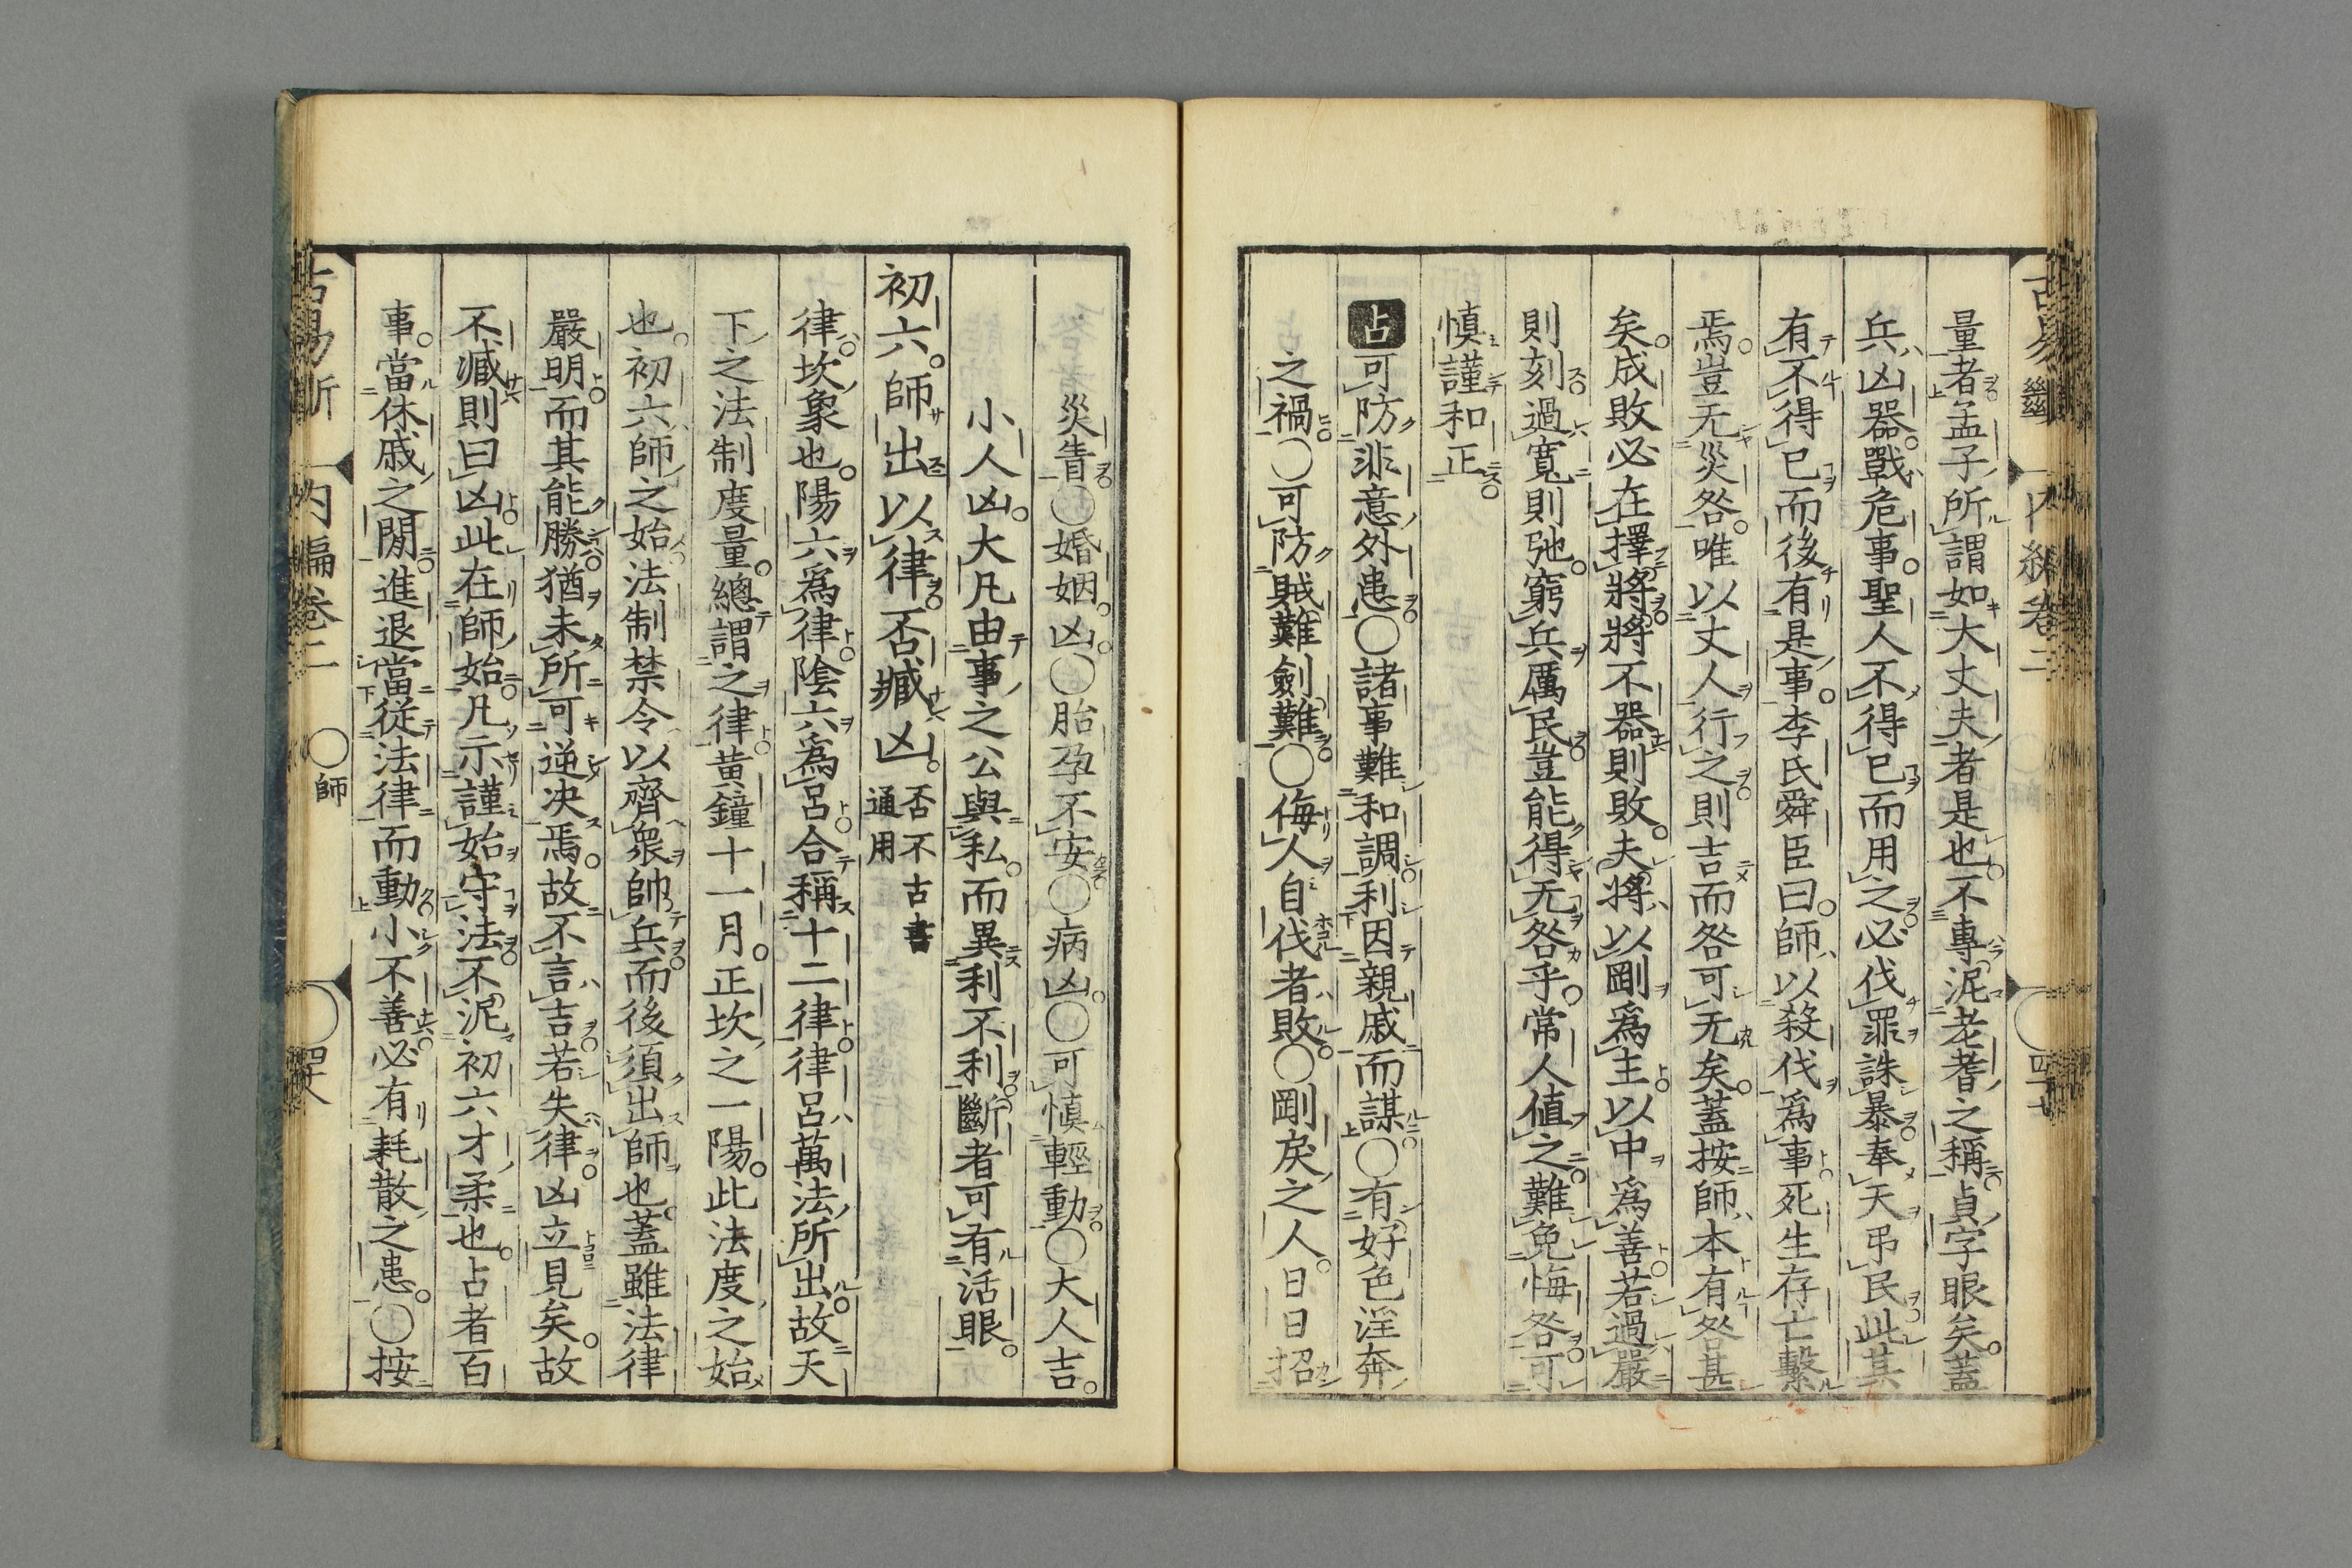 量者孟子所謂如大丈夫者是也不專泥老耆之稱貞字眼矣蓋
兵凶器戰危事聖人不得已而用之必伐罪誅暴奉天弔民此其
有不得已而後有是事李氏舜臣曰師以殺伐爲事死生存亡繫
焉豈无災咎唯以丈人行之則吉而咎可无矣蓋按師本有咎甚
矣成敗必在擇將將不器則敗夫將以剛爲主以中爲善若過嚴
則刻過寬則弛窮兵厲民豈能得无咎乎常人値之難免悔咎可
慎謹和正
占可防非意外患○諸事難和調利因親戚而謀○有好色淫奔
之禍○可防賊難劍難○侮人自伐者敗○剛戾之人日日招
災眚○婚姻凶○胎孕不安○病凶○可慎輕動○大人吉
小人凶大凡由事之公與私而異利不利斷者可有活眼
初六師出以律否臧凶 否不古書
通用
律坎象也陽六爲律陰六爲呂合稱十二律律呂萬法所出故天
下之法制度量總謂之律黃鐘十一月正坎之一陽此法度之始
也初六師之始法制禁令以齊衆帥兵而後須出師也蓋雖法律
嚴明而其能勝猶未所可逆決焉故不言吉若失律凶立見矣故
不臧則曰凶此在師始凡示謹始守法不泥初六才柔也占者百
事當休戚之閒進退當從法律而動小不善必有耗散之患○按
古易斷 内編卷二 ○師